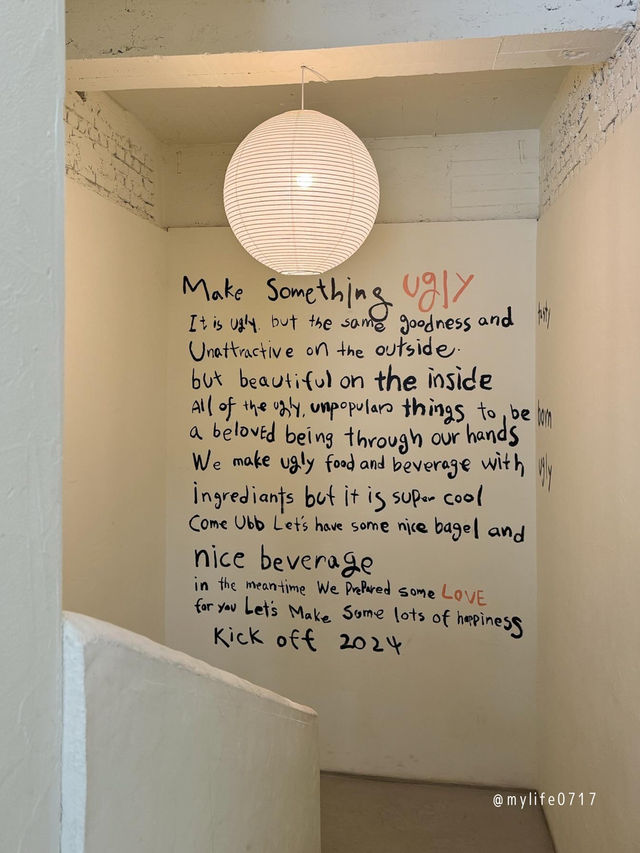 Make Something ugly
It is ugly. but the same goodness and tasty
Unattractive on the outside.
but beautiful on the inside
All of the ugly, unpopulars things to be born
a beloved being through our hands
We make ugly food and beverage with ugly
ingrediants but it is super cool
Come Ubb Let's have some nice bagel and
nice beverage
in the meantime We Prepared some LOVE
for you Let's Make Some lots of happiness
Kick off 2024
@mylife0717